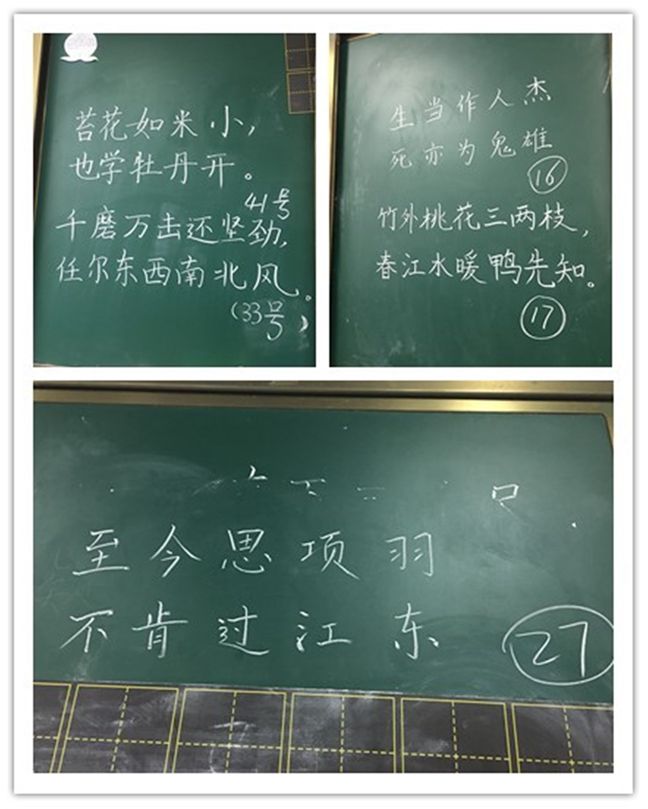 苔花如米小，
也学牡丹开。
41号
千磨万击还坚劲，
任尔东西南北风。
（33号）
生当作人杰
死亦为鬼雄
16
竹外桃花三两枝，
春江水暖鸭先知。
17
至今思项羽
不肯过江东
27